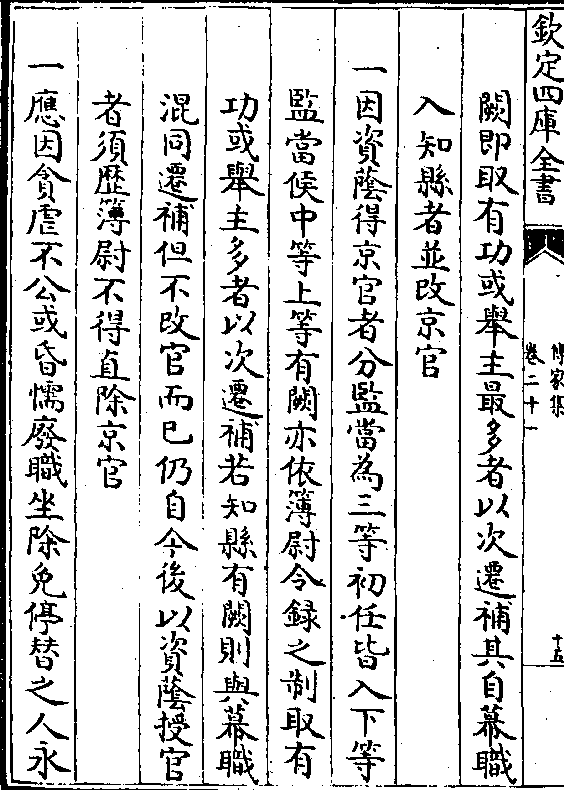 欽定四庫全書
傳家集
卷二十一
十五
闕即取有功或舉主最多者以次遷補其自幕職
入知縣者並改京官
一因資蔭得京官者分監當為三等初任皆入下等
監當候中等上等有闕亦依簿尉令録之制取有
功或舉主多者以次遷補若知縣有闕則與幕職
混同遷補但不改官而已仍自今後以資蔭授官
者須歴簿尉不得直除京官
一應因貪虐不公或昏懦廢職坐除免停替之人永